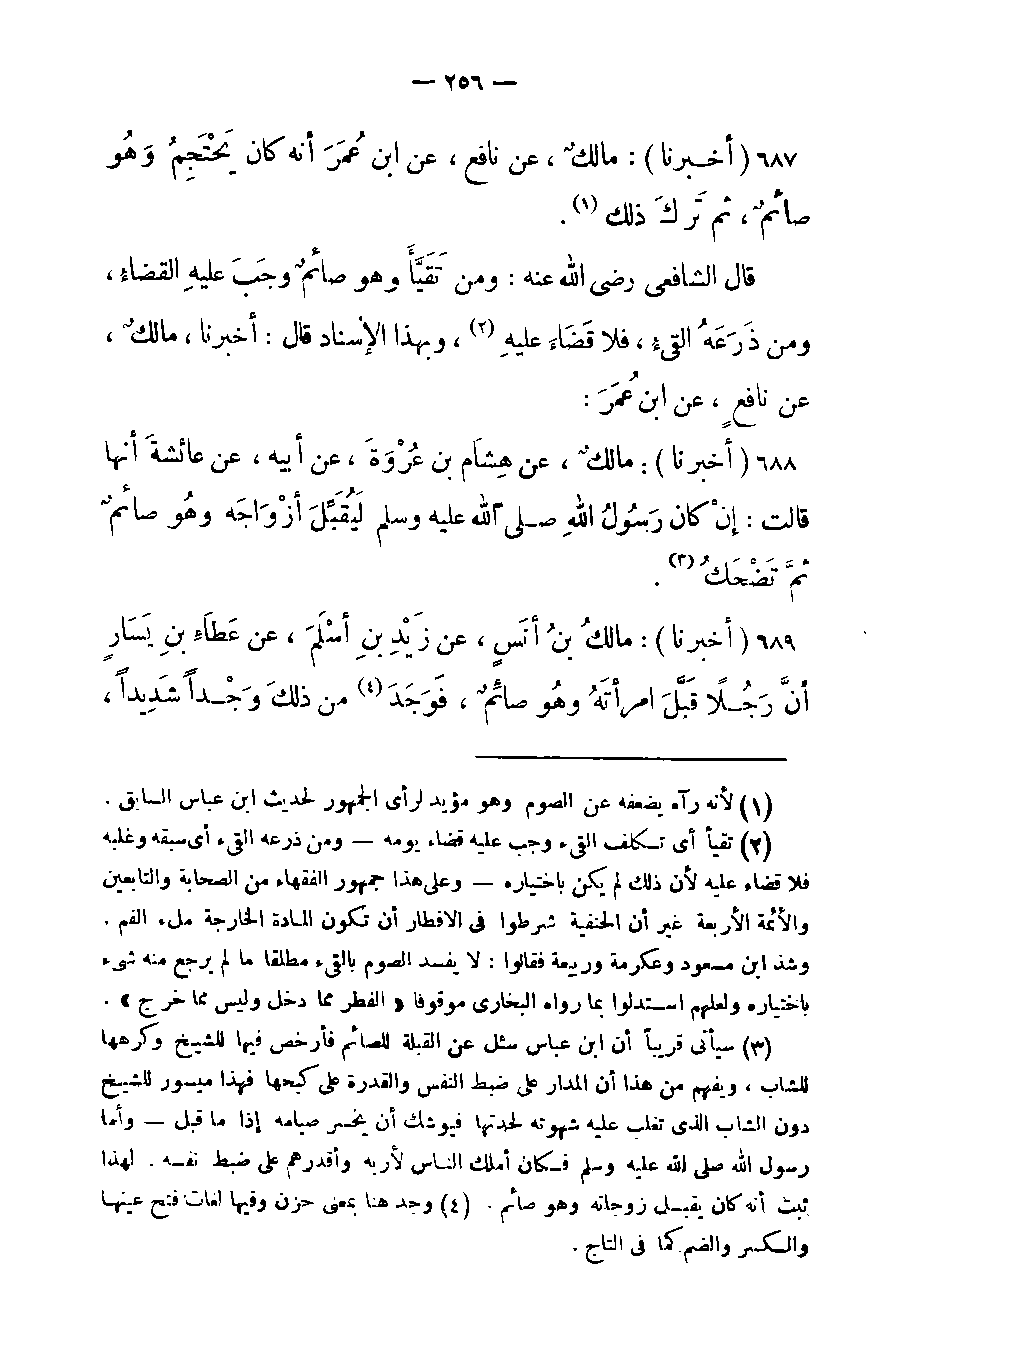 — ٢٥٦ —
٦٨٧ (أخـبرنا) : مالكٌ ، عن نافع ، عن ابن عُمَرَ أنه كان يَحْتَجِمُ وَهُو
صائمٌ ، ثم تَركَ ذلك (١) .
قال الشافعى رضى الله عنه : ومن تَقَيَّأَ وهو صائمٌ وجَبَ عليهِ القضاءُ ،
ومن ذَرَعَهُ القىءُ ، فلا قَضَاءَ عليهِ (٢) ، وبهذا الإسناد قال : أخبرنا ، مالكٌ ،
عن نافعٍ ، عن ابن عُمَرَ :
٦٨٨ (أخبرنا) : مالكٌ ، عن هِشَامِ بن عُرْوَةَ ، عن أبيه ، عن عائشةَ أنها
قالت : إنْ كان رَسُولُ اللهِ صـلى الله عليه وسلم لَيُقَبِّلَ أزْوَاجَه وهُو صائمٌ
ثمَّ تَضْحَكُ (٣) .
٦٨٩ (أخبرنا) : مالكُ بنُ أنَسٍ ، عن زَيْدِ بنِ أسْلَمَ ، عن عَطَاءِ بنِ يَسَارٍ
أنَّ رَجُـلًا قَبَّلَ امرأتَهُ وهُو صائمٌ ، فَوَجَدَ (٤) من ذلكَ وَجْـداً شَدِيداً ،
(١) لأنه رآه يضعفه عن الصوم وهو مؤيد لرأى الجمهور لحديث ابن عباس السابق .
(٢) تقيأ أى تـكلف القىء وجب عليه قضاء يومه — ومن ذرعه القىء أى سبقه وغلبه
فلا قضاء عليه لأن ذلك لم يكن باختياره — وعلى هذا جمهور الفقهاء من الصحابة والتابعين
والأئمة الأربعة غير أن الحنفية شرطوا فى الافطار أن تكون المادة الخارجة ملء الفم .
وشذ ابن مسعود وعكرمة وربيعة فقالوا : لا يفسد الصوم بالقىء مطلقا ما لم يرجع منه شىء
باختياره ولعلهم استدلوا بما رواه البخارى موقوفا « الفطر مما دخل وليس مما خرج » .
(٣) سيأتى قريباً أن ابن عباس سئل عن القبلة للصائم فأرخص فيها للشيخ وكرهها
للشاب ، ويفهم من هذا أن المدار على ضبط النفس والقدرة على كبحها فهذا ميسور للشيخ
دون الشاب الذى تغلب عليه شهوته لحدتها فيوشك أن يخسر صيامه إذا ما قبل — وأما
رسول الله صلى الله عليه وسلم فـكان أملك الناس لأربه وأقدرهم على ضبط نفسه . لهذا
ثبت أنه كان يقبـل زوجاته وهو صائم . (٤) وجد هنا بمعنى حزن وفيها لغات فتح عينها
والـكسر والضم كما فى التاج .